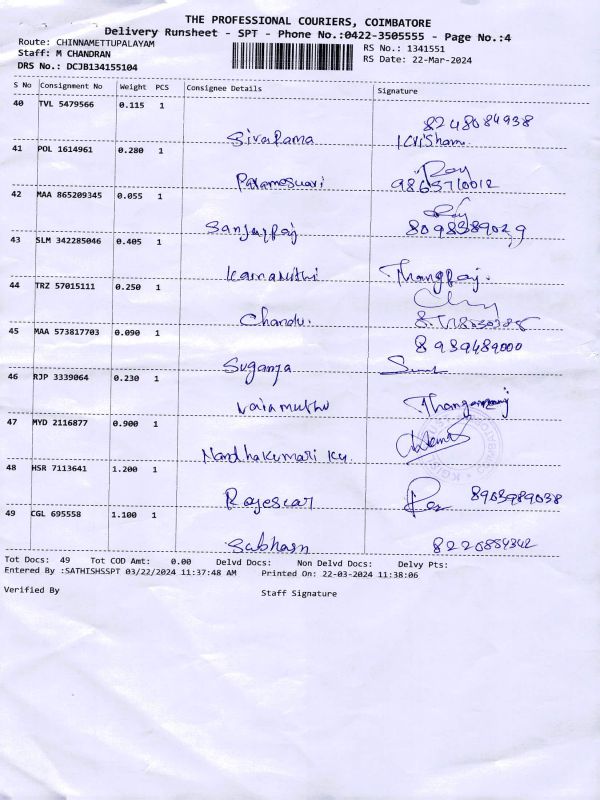 THE PROFESSIONAL COURIERS, COIMBATORE
Delivery Runsheet - SPT - Phone No.:0422-3505555 - Page No.:4
Route: CHINNAMETTUPALAYAM
RS No.: 1341551
Staff: M CHANDRAN
RS Date: 22-Mar-2024
DRS No.: DCJB134155104
S No Consignment No Weight PCS Consignee Details Signature
40 TVL 5479566 0.115 1
8248084938
SivaRama
41 POL 1614961 0.280 1
Parameswari 9865710012
42 MAA 865209345 0.055 1
Sanjayraj
43 SLM 342285046 0.405 1
Kamaruthi Thangaraj.
44 TRZ 57015111 0.250 1
Chandu.
45 MAA 573817703 0.090 1
8939489000
Suganya
46 RJP 3339064 0.230 1
Vaiamuthu
47 MYD 2116877 0.900 1
Nandhakumari Ku.
48 HSR 7113641 1.200 1
Rajeswar 8903989038
49 CGL 695558 1.100 1
Subhash 8220854342
Tot Docs: 49 Tot COD Amt: 0.00 Delvd Docs: Non Delvd Docs: Delvy Pts:
Entered By :SATHISHSSPT 03/22/2024 11:37:48 AM Printed On: 22-03-2024 11:38:06
Verified By Staff Signature